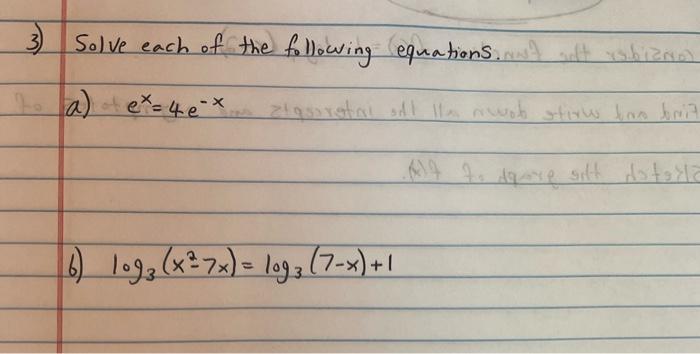 3) Solve each of the following equations.
a) eˣ = 4e⁻ˣ
b) log₃(x²-7x) = log₃(7-x)+1